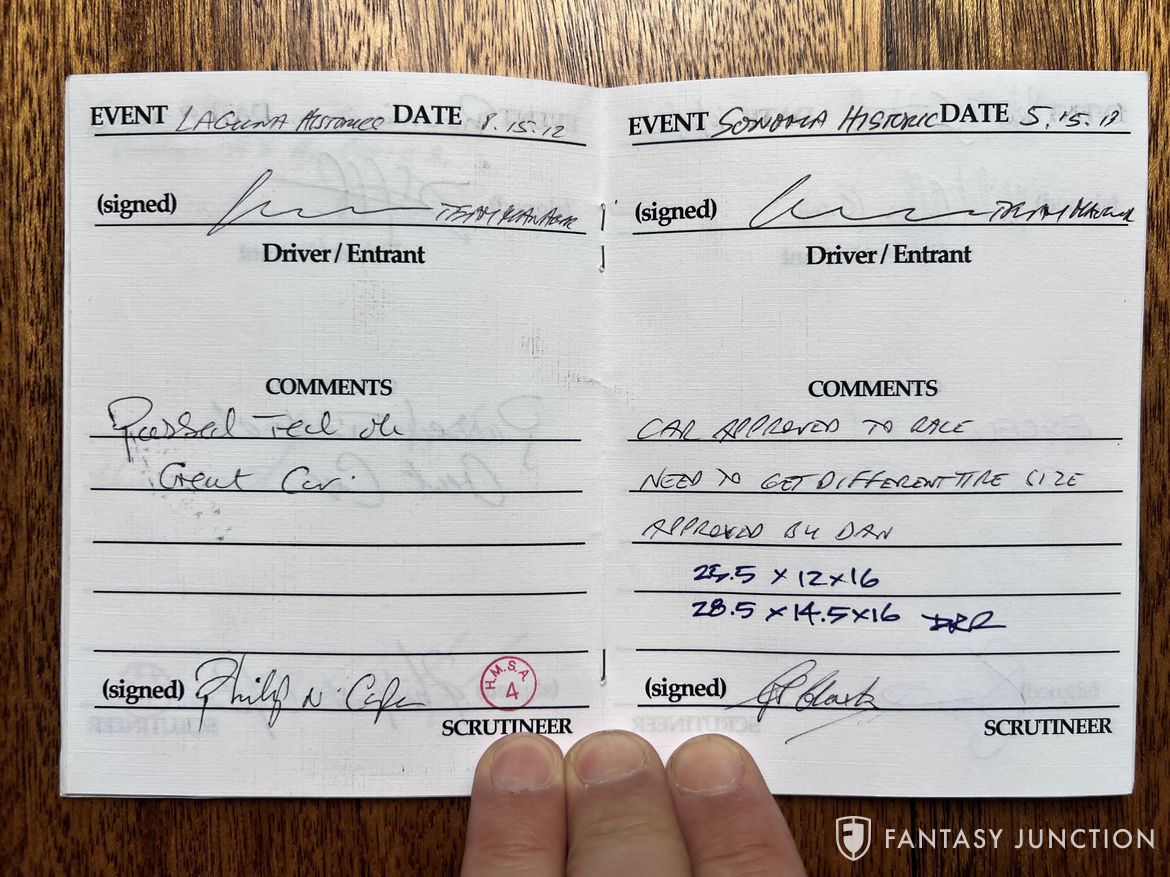 EVENT LAGUNA HISTORIC DATE 8.15.12
(signed) TEAM MANAGER
Driver / Entrant
COMMENTS
Passed Tech ok
Great Car.
(signed) Philip N.
H.M.S.A 4
SCRUTINEER
EVENT SONOMA HISTORIC DATE 5.15.
(signed) TEAM
Driver / Entrant
COMMENTS
CAR APPROVED TO RACE
NEED TO GET DIFFERENT TIRE SIZE
APPROVED BY DAN
25.5 x 12 x 16
28.5 x 14.5 x 16
(signed)
SCRUTINEER
FANTASY JUNCTION